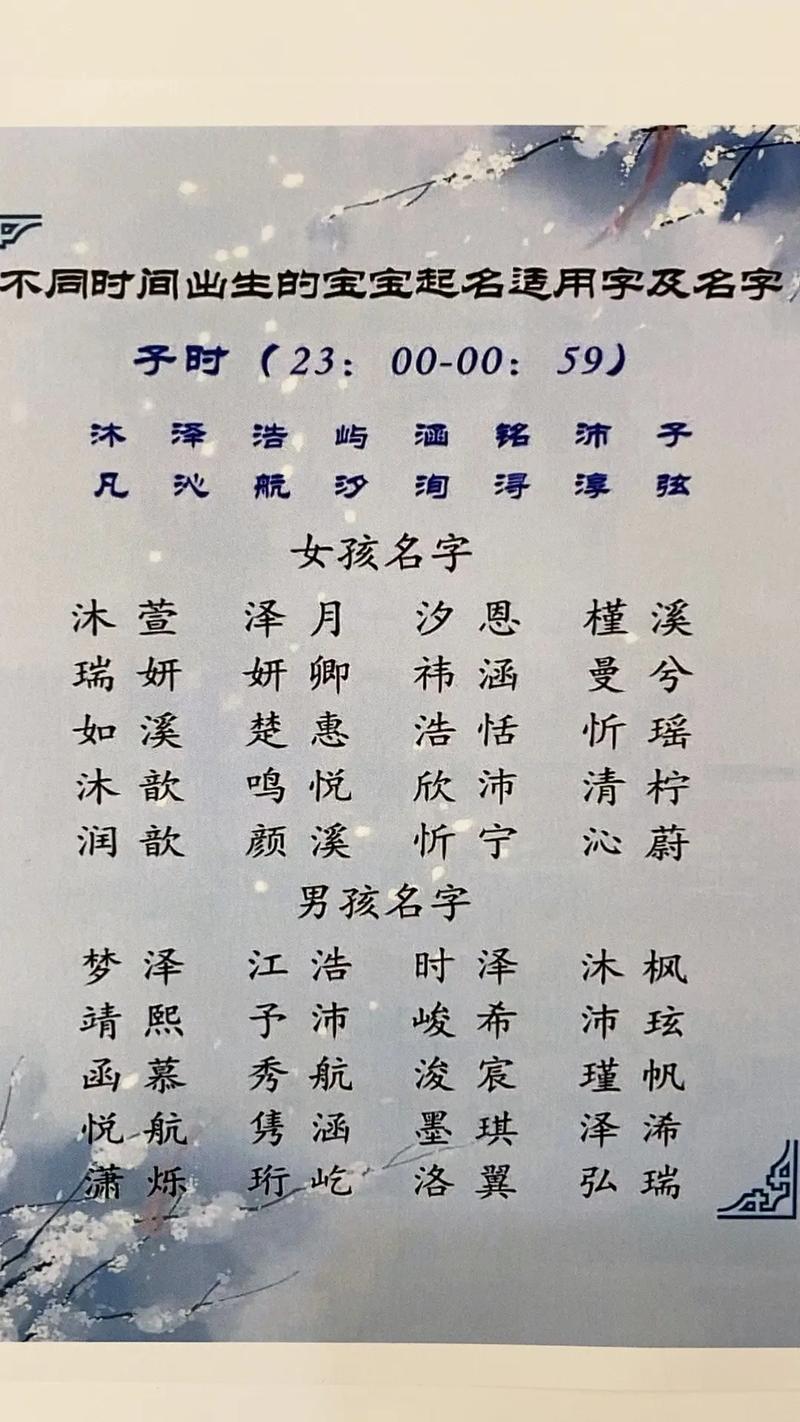 不同时间出生的宝宝起名适用字及名字
子时（23：00-00：59）
沐 泽 浩 屿 涵 铭 沛 子
凡 沁 航 汐 洵 浔 淳 弦
女孩名字
沐萱 泽月 汐恩 槿溪
瑞妍 妍卿 祎涵 曼兮
如溪 楚惠 浩恬 忻瑶
沐歆 鸣悦 欣沛 清柠
润歆 颜溪 忻宁 沁蔚
男孩名字
梦泽 江浩 时泽 沐枫
靖熙 予沛 峻希 沛玹
函慕 秀航 浚宸 瑾帆
悦航 隽涵 墨琪 泽浠
潇烁 珩屹 洛翼 弘瑞